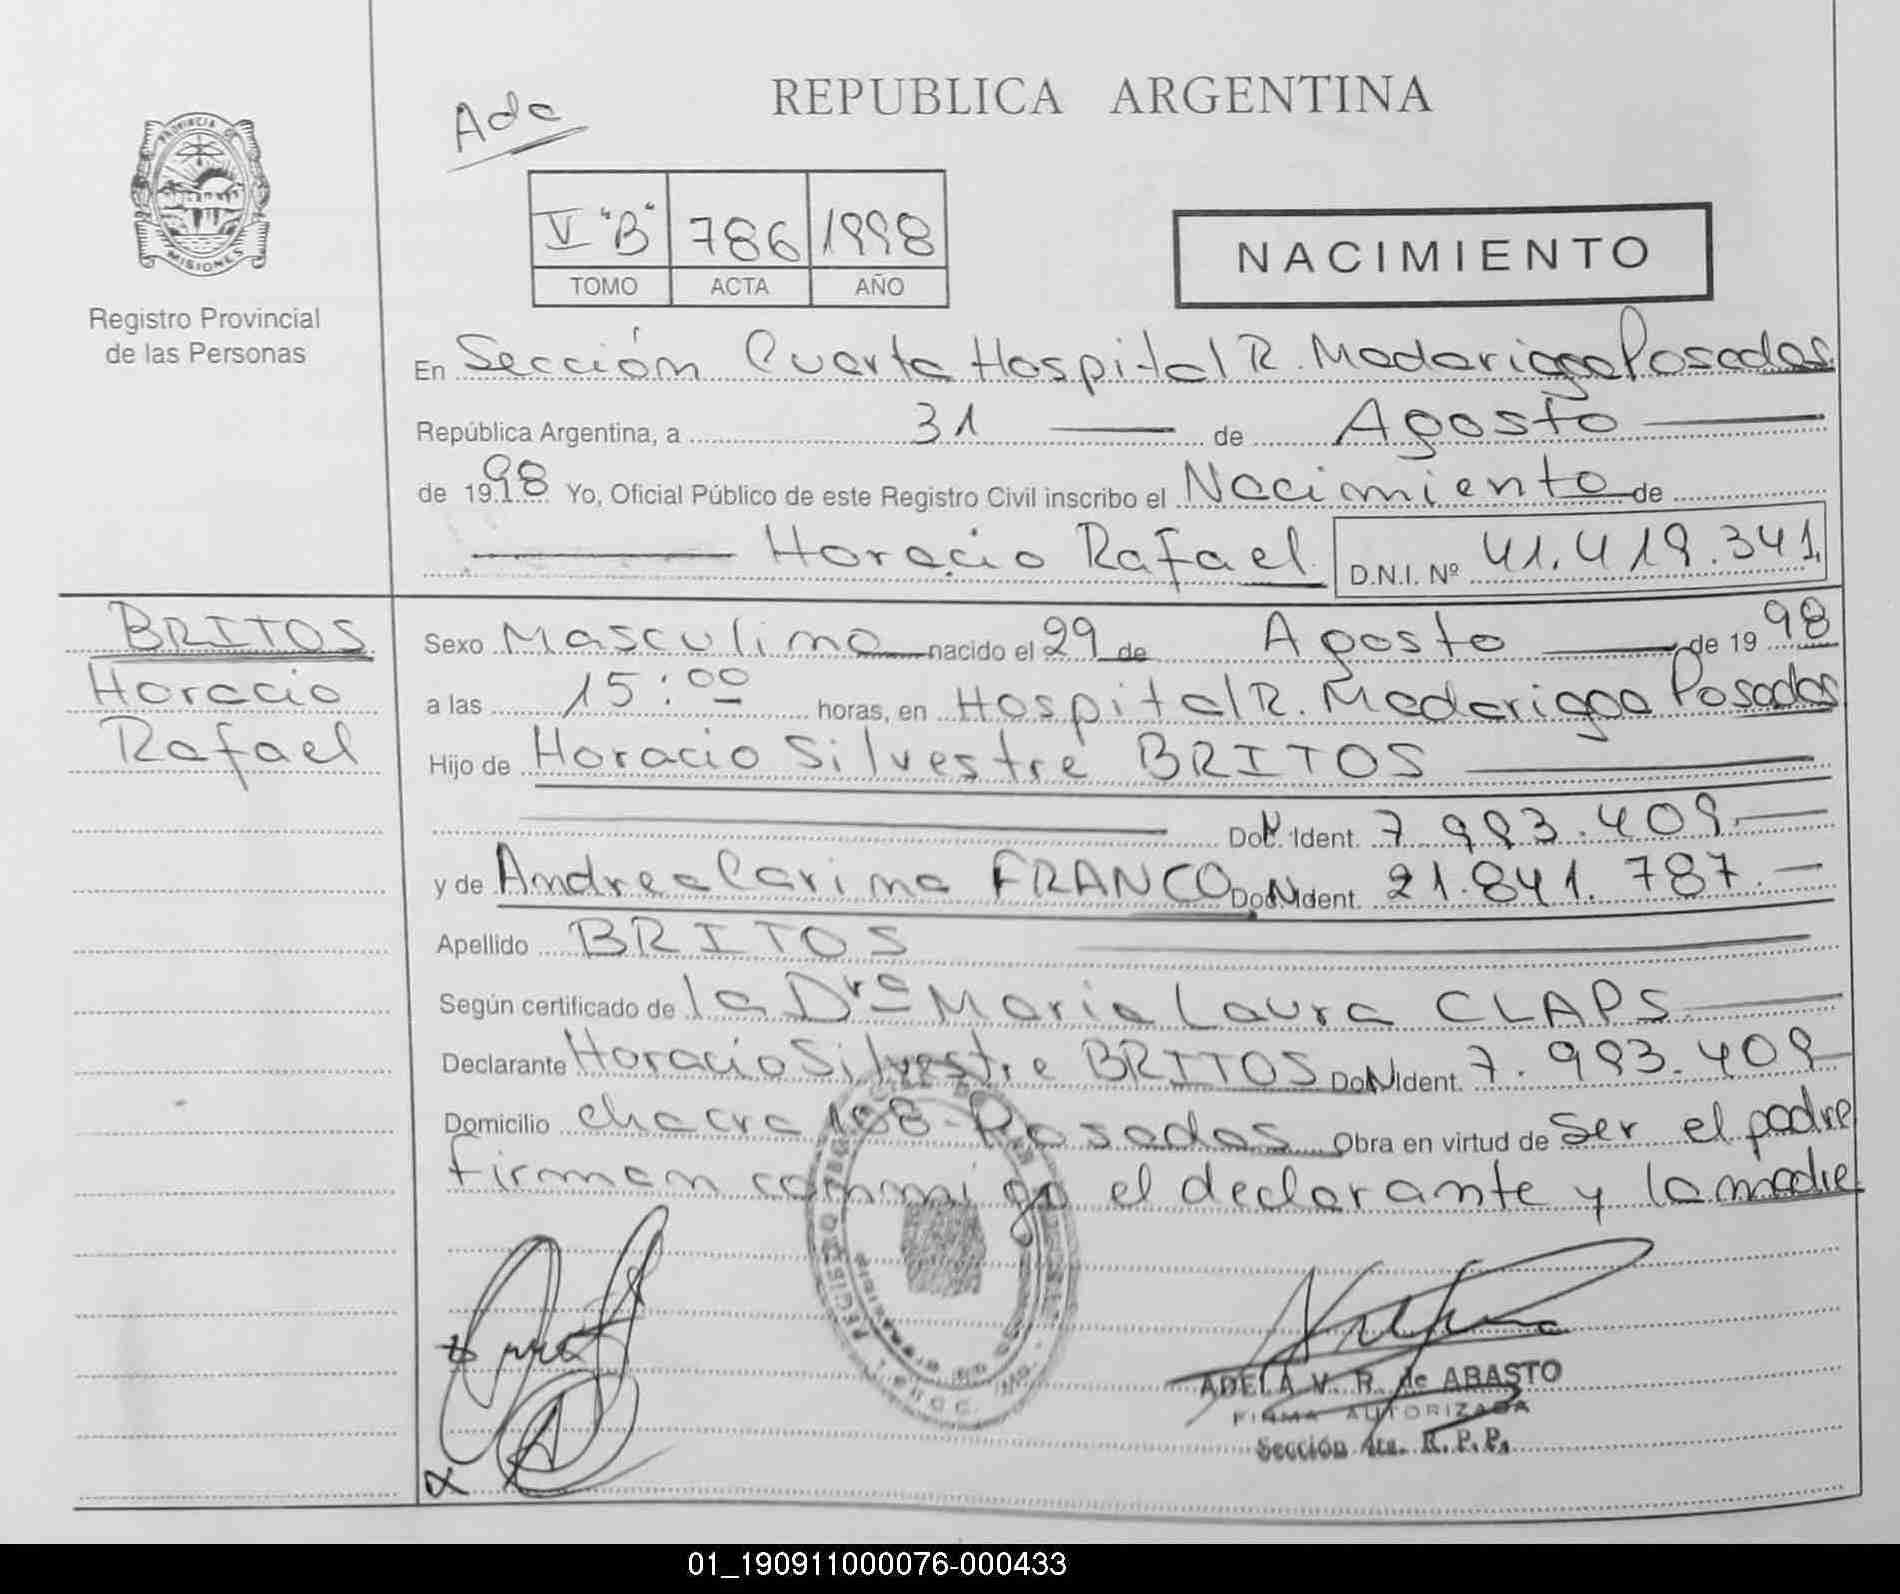 REPUBLICA ARGENTINA
Ada
PROVINCIA DE
MISIONES
Registro Provincial
de las Personas
V "B" 786 1998
TOMO ACTA AÑO
NACIMIENTO
En Sección Cuarta Hospital R. Madariaga Posadas
República Argentina, a 31 de Agosto
de 1998 Yo, Oficial Público de este Registro Civil inscribo el Nacimiento de
Horacio Rafael D.N.I. Nº 41.419.341
BRITOS
Horacio
Rafael
Sexo Masculino nacido el 29 de Agosto de 1998
a las 15:00 horas, en Hospital R. Madariaga Posadas
Hijo de Horacio Silvestre BRITOS
Ident. 7.993.409.
y de Andrea Carina FRANCO Ident. 21.841.787.
Apellido BRITOS
Según certificado de la Dra Maria Laura CLAPS
Declarante Horacio Silvestre BRITOS Ident. 7.993.409
Domicilio chacra 108- Posadas Obra en virtud de Ser el padre
firman conmigo el declarante y la madre
ADELA V. R. de ABASTO
FIRMA AUTORIZADA
Sección 4ta. R.P.P.
01_190911000076-000433